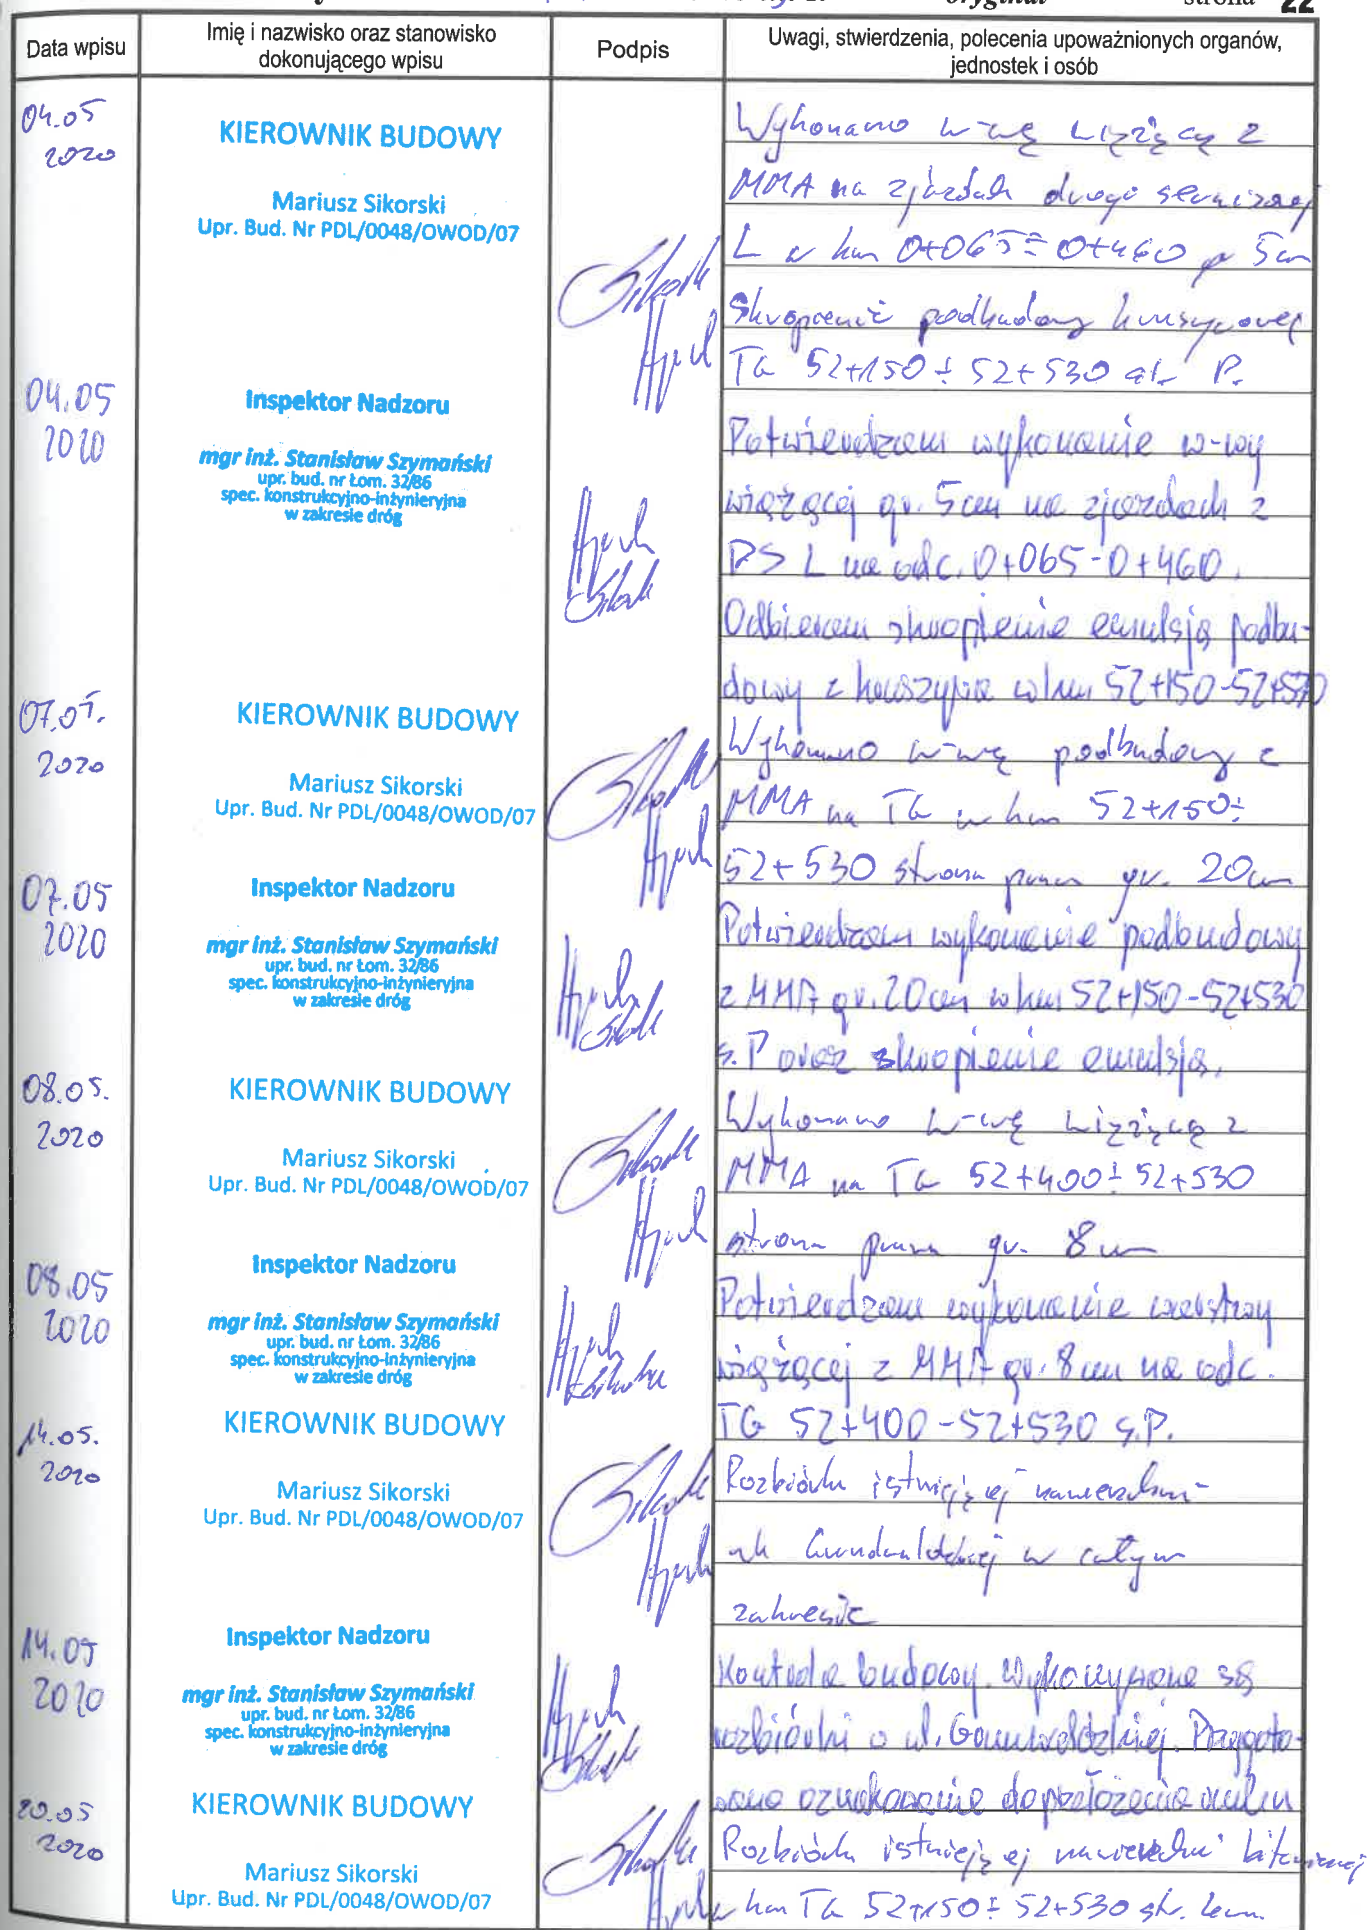 oryginał strona 22
Data wpisu
Imię i nazwisko oraz stanowisko
dokonującego wpisu
Podpis
Uwagi, stwierdzenia, polecenia upoważnionych organów,
jednostek i osób
04.05
2020
KIEROWNIK BUDOWY
Mariusz Sikorski
Upr. Bud. Nr PDL/0048/OWOD/07
Wykonano w-wę wiążącą z
MMA na zjazdach drogi serwisowej
L w km 0+065÷0+460 gr 5cm
Skropienie podbudowy kruszywowej
TG 52+150÷52+530 str P.
04.05
2020
Inspektor Nadzoru
mgr inż. Stanisław Szymański
upr. bud. nr Łom. 32/86
spec. konstrukcyjno-inżynieryjna
w zakresie dróg
Potwierdzam wykonanie w-wy
wiążącej gr. 5cm na zjazdach z
DS L na odc. 0+065-0+460.
Odbieram skropienie emulsją podbu-
dowy z kruszywa w km 52+150-52+530
07.05.
2020
KIEROWNIK BUDOWY
Mariusz Sikorski
Upr. Bud. Nr PDL/0048/OWOD/07
Wykonano w-wę podbudowy z
MMA na TG w km 52+150÷
52+530 strona prawa gr. 20cm
07.05
2020
Inspektor Nadzoru
mgr inż. Stanisław Szymański
upr. bud. nr Łom. 32/86
spec. konstrukcyjno-inżynieryjna
w zakresie dróg
Potwierdzam wykonanie podbudowy
z MMA gr. 20cm w km 52+150-52+530
s.P oraz skropienie emulsją.
08.05.
2020
KIEROWNIK BUDOWY
Mariusz Sikorski
Upr. Bud. Nr PDL/0048/OWOD/07
Wykonano w-wę wiążącą z
MMA na TG 52+400÷52+530
strona prawa gr. 8cm
08.05
2020
Inspektor Nadzoru
mgr inż. Stanisław Szymański
upr. bud. nr Łom. 32/86
spec. konstrukcyjno-inżynieryjna
w zakresie dróg
Potwierdzam wykonanie warstwy
wiążącej z MMA gr. 8cm na odc.
TG 52+400-52+530 s.P.
14.05.
2020
KIEROWNIK BUDOWY
Mariusz Sikorski
Upr. Bud. Nr PDL/0048/OWOD/07
Rozbiórka istniejącej nawierzchni
ul. Grunwaldzkiej w całym
zakresie
14.05
2020
Inspektor Nadzoru
mgr inż. Stanisław Szymański
upr. bud. nr Łom. 32/86
spec. konstrukcyjno-inżynieryjna
w zakresie dróg
Kontrola budowy. Wykonywane są
rozbiórki ul. Grunwaldzkiej. Przygoto-
wano oznakowanie do przełożenia ruchu
20.05
2020
KIEROWNIK BUDOWY
Mariusz Sikorski
Upr. Bud. Nr PDL/0048/OWOD/07
Rozbiórka istniejącej nawierzchni bitumicznej
w km TG 52+150÷52+530 str. lewa